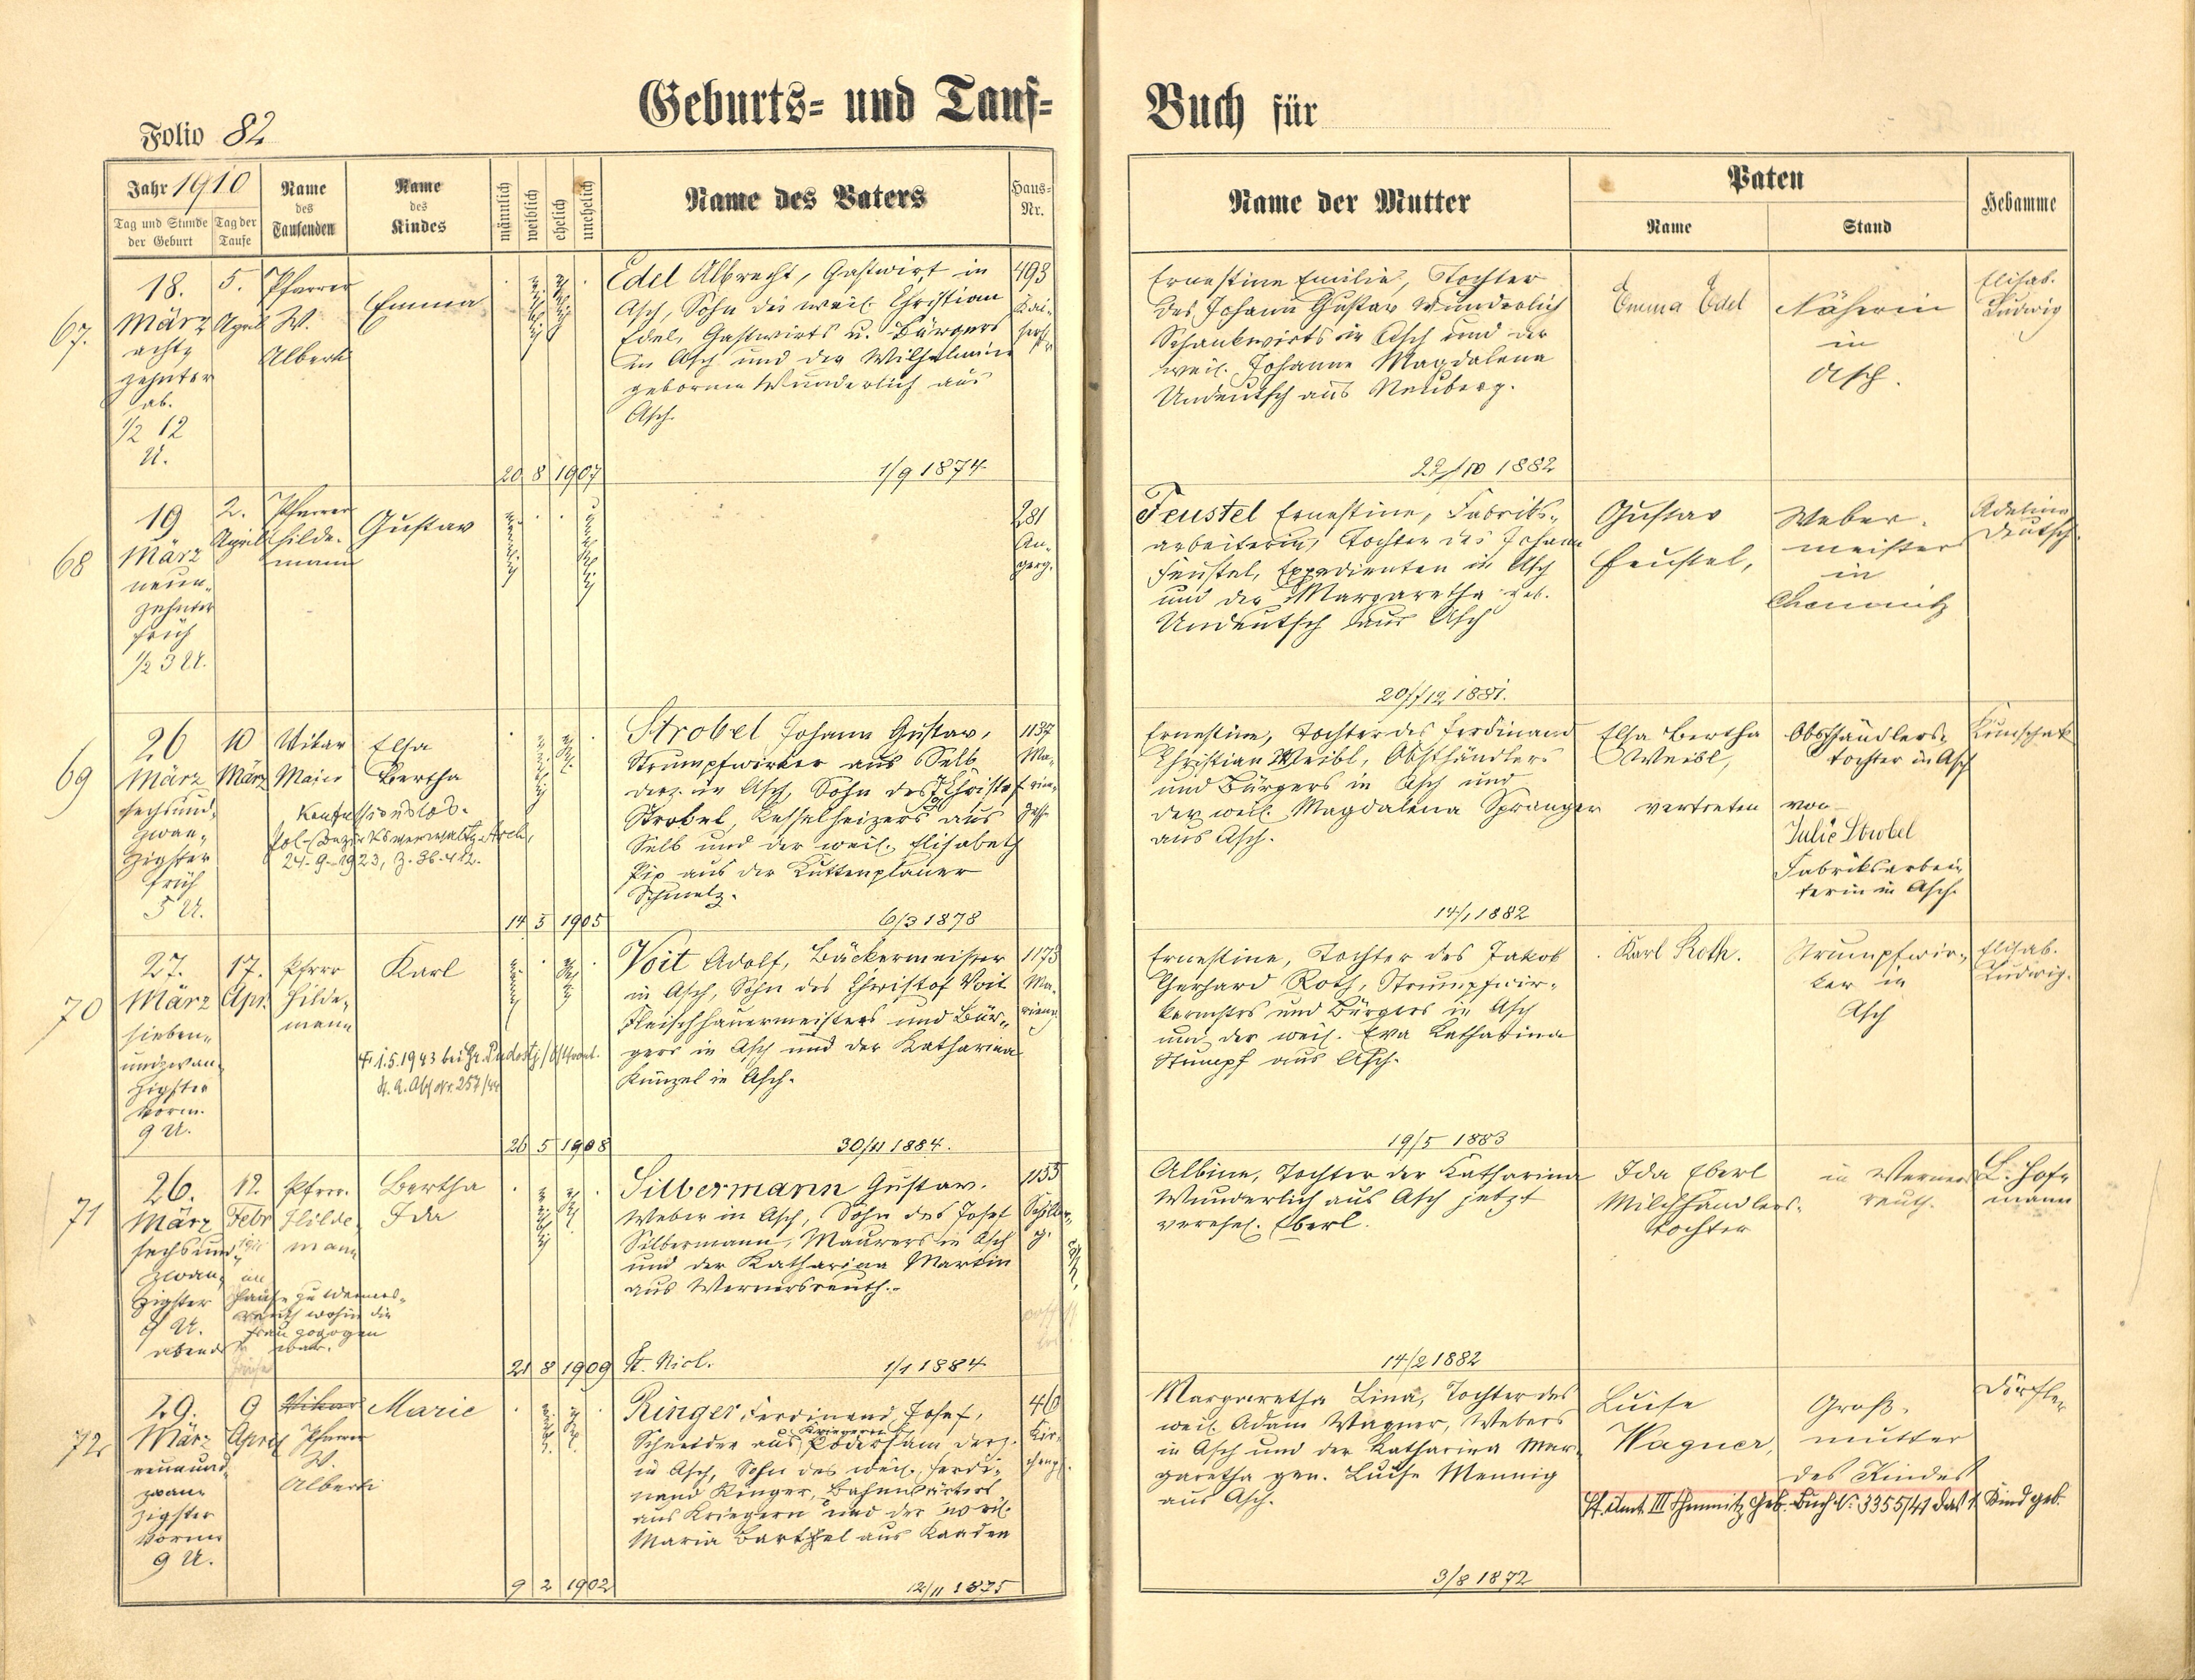 Geburts- und Tauf-
Buch für
Folio 82
Jahr 1910
Tag und Stunde der Geburt
Tag der Taufe
Name des Taufenden
Name des Kindes
männlich
weiblich
ehelich
unehelich
Name des Vaters
Haus-Nr.
Name der Mutter
Paten
Name
Stand
Hebamme
67.
18.
März
acht-
zehnter
ab.
1/2 12
U.
5.
April
Pfarrer
W.
Alberti
Emma
20 8 1907
Edel Albrecht, Gastwirt in
Asch, Sohn des weil. Christian
Edel, Gastwirts u. Bürgers
in Asch und der Wilhelmine
geborene Wunderlich aus
Asch.
1/9 1874
493
Kai-
serstr.
Ernestine Emilie, Tochter
des Johann Gustav Wunderlich
Schankwirts in Asch und der
weil. Johanne Magdalena
Undeutsch aus Neuberg.
22/10 1882
Emma Edel
Näherin
in
Asch.
Elisab.
Ludwig
68
19
März
neun-
zehnter
früh
1/2 3 U.
2.
April
Pfarrer
Hilde-
mann
Gustav
281
An-
gerg.
Feustel Ernestine, Fabriks-
arbeiterin, Tochter des Johann
Feustel, Expedienten in Asch
und der Margaretha geb.
Undeutsch aus Asch
20/12 1881.
Gustav
Feustel,
Weber-
meister
in
Chemnitz
Adeline
Deutsch.
69
26
März
sechsund-
zwan-
zigster
früh
5 U.
10
März
Vikar
Maier
Elsa
Bertha
Konfessionslos.
Pol. Bezirksverwaltg. Asch,
24.-9.-1923, Z. 36.412.
14 5 1905
Strobel Johann Gustav,
Strumpfwirker aus Selb
derz. in Asch, Sohn des Christof
Strobel, Kesselheizers aus
Selb und der weil. Elisabeth
Pix aus der Kuttenplaner
Schmelz.
6/3 1878
1137
Ma-
rien-
gasse
Ernestine, Tochter des Ferdinand
Christian Weibl, Obsthändlers
und Bürgers in Asch und
der weil. Magdalena Spranger
aus Asch.
14/1 1882
Elsa Bertha
Weibl,
vertreten
Obsthändlers-
tochter in Asch
von
Julie Strobel
Fabriksarbei-
terin in Asch.
70
27.
März
sieben-
undzwan-
zigster
vorm.
9 U.
17.
Apr.
Pfrr
Hilde-
mann
Karl
26 5 1908
Voit Adolf, Bäckermeister
in Asch, Sohn des Christof Voit
Fleischhauermeisters und Bür-
gers in Asch und der Katharina
Künzel in Asch.
30/11 1884.
1173
Ma-
rieng.
Ernestine, Tochter des Jakob
Gerhard Roth, Strumpfwir-
kers und Bürgers in Asch
und der weil. Eva Katharina
Stumpf aus Asch.
19/5 1883
Karl Roth.
Strumpfwir-
ker in
Asch
Elisab.
Ludwig.
71
26.
März
sechsund-
zwan-
zigster
9 U.
abends
12.
Febr
im
Hause zu Werners-
reuth wohin die
Frau gezogen
war.
Pfrr.
Hilde-
mann
Bertha
Ida
21 8 1909
Silbermann Gustav.
Weber in Asch, Sohn des Josef
Silbermann, Maurers in Asch
und der Katharina Martin
aus Wernersreuth.
St. Nicl.
1/1 1884
1155
Schiller-
g.
Albine, Tochter der Katharina
Wunderlich aus Asch jetzt
verehel. Eberl.
14/2 1882
Ida Eberl
Milchhändlers-
tochter
in Werners
reuth.
L. Hof-
mann
72
29.
März
neunund-
zwan-
zigster
Vorm
9 U.
9
April
Vikar
Pfarrer
W.
Alberti
Marie
9 2 1902
Ringer, Ferdinand Josef,
Kriegern
Schneider aus Podersam derz.
in Asch, Sohn des weil. Ferdi-
nand Ringer, Bahnwärters
aus Kriegern und der weil.
Maria Barthel aus Kaaden
12/11 1875
46
Kir-
cheng.
Margaretha Lina, Tochter des
weil. Adam Wagner, Webers
in Asch und der Katharina Mar-
garetha gen. Luise Mennig
aus Asch.
3/8 1872
Luise
Wagner,
Groß-
mutter
des Kindes
Dörfler
St. Amt III Chemnitz Geb. Buch Nr. 3355/41 das 1. Kind geb.